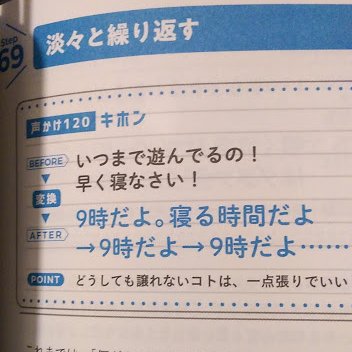 Step
69
淡々と繰り返す
声かけ120 キホン
BEFORE いつまで遊んでるの！
早く寝なさい！
変換
9時だよ。寝る時間だよ
AFTER →9時だよ→9時だよ……
POINT どうしても譲れないコトは、一点張りでいい